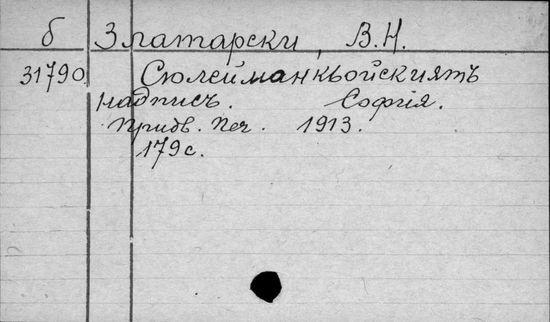 б Златарски, В.Н.
31790 Сюлейманкьойскиятъ
надпись. Софія.
Придв. Печ. 1913.
179 с.